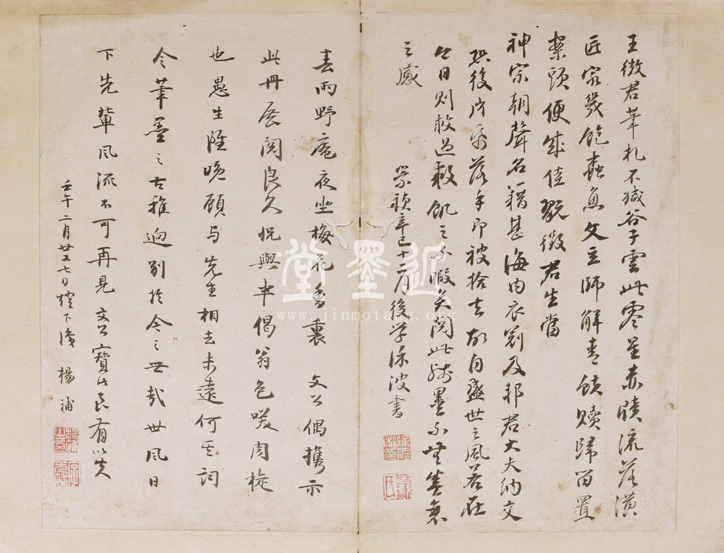 王徵君筆札不減谷子雲此零星赤牘流落潢
匠家幾飽蠹魚文主師解青錢贖歸留置
案頭便成佳翫徵君生當
神宗朝聲名籍甚海內衣冠及邦君大夫納交
恐後片紙落手即被拾去故自盛世之風若在
今日則救過救飢之不暇矣閱此殘墨不無盛衰
之感
崇禎辛巳十二月後學徐波書
春雨野庵夜坐梅花香裏 文公偶攜示
此冊展閱良久恍與半偈翁色咲周旋
也愚生雖晚願與先生相去未遠何其詞
令筆墨之古雅迥別於今之世哉世風日
下先輩風流不可再見文公寶此良有以矣
壬午二月廿七日燈下識 楊補
近墨堂
www.jinmotang.org